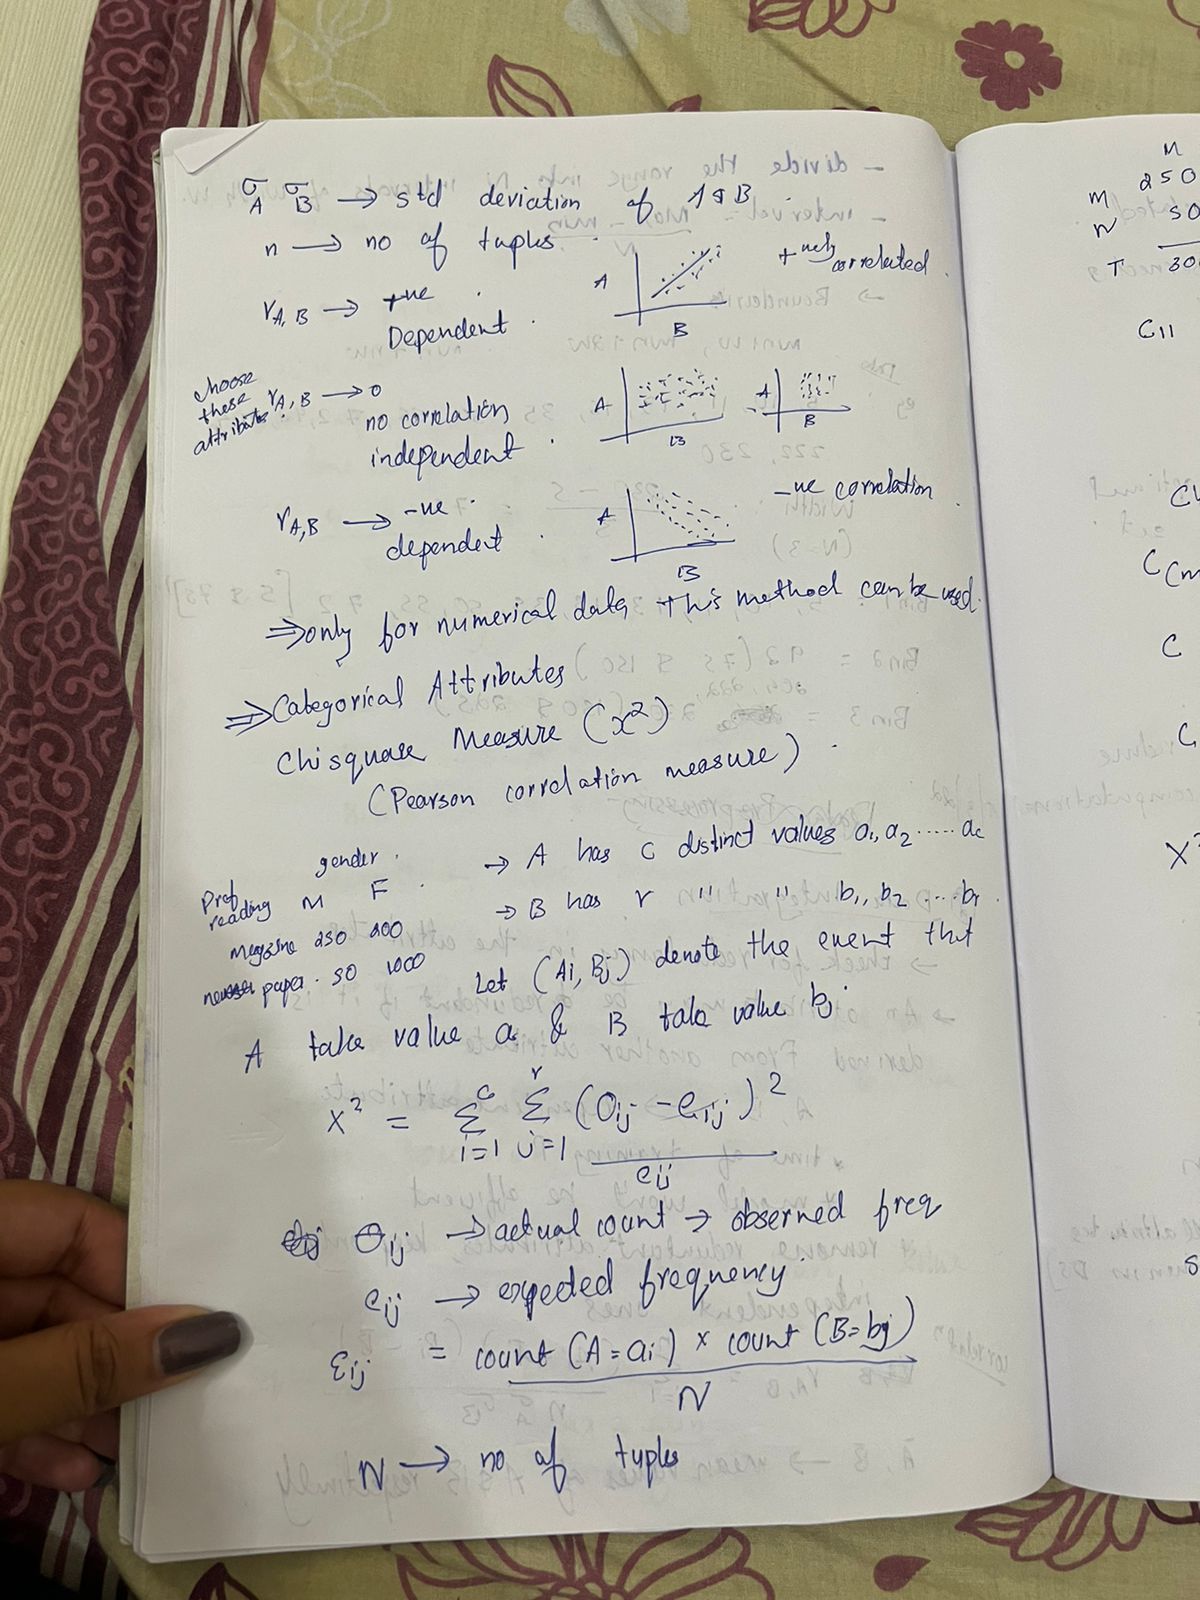 σA σB → std deviation of A & B
n → no of tuples
rA,B → +ve
Dependent
A
B
+vely correlated
choose these attributes
rA,B → 0
no correlation
independent
A
B
A
B
rA,B → -ve
dependent
A
B
-ve correlation
⇒ only for numerical data this method can be used.
⇒ Categorical Attributes
Chisquare Measure (x²)
(Pearson correlation measure)
gender
Pref reading M F
magazine 250 200
paper 50 1000
→ A has c distinct values a1, a2 ..... ac
→ B has r " " b1, b2 ... br
Let (Ai, Bj) denote the event that
A take value ai & B take value bj
X² = Σ^c i=1 Σ^r j=1 (Oij - eij)² / eij
Oij → actual count → observed freq
eij → expected frequency
εij = count (A = ai) x count (B = bj) / N
N → no of tuples
M
M 250
N 50
T 300
C11
C
C
X²